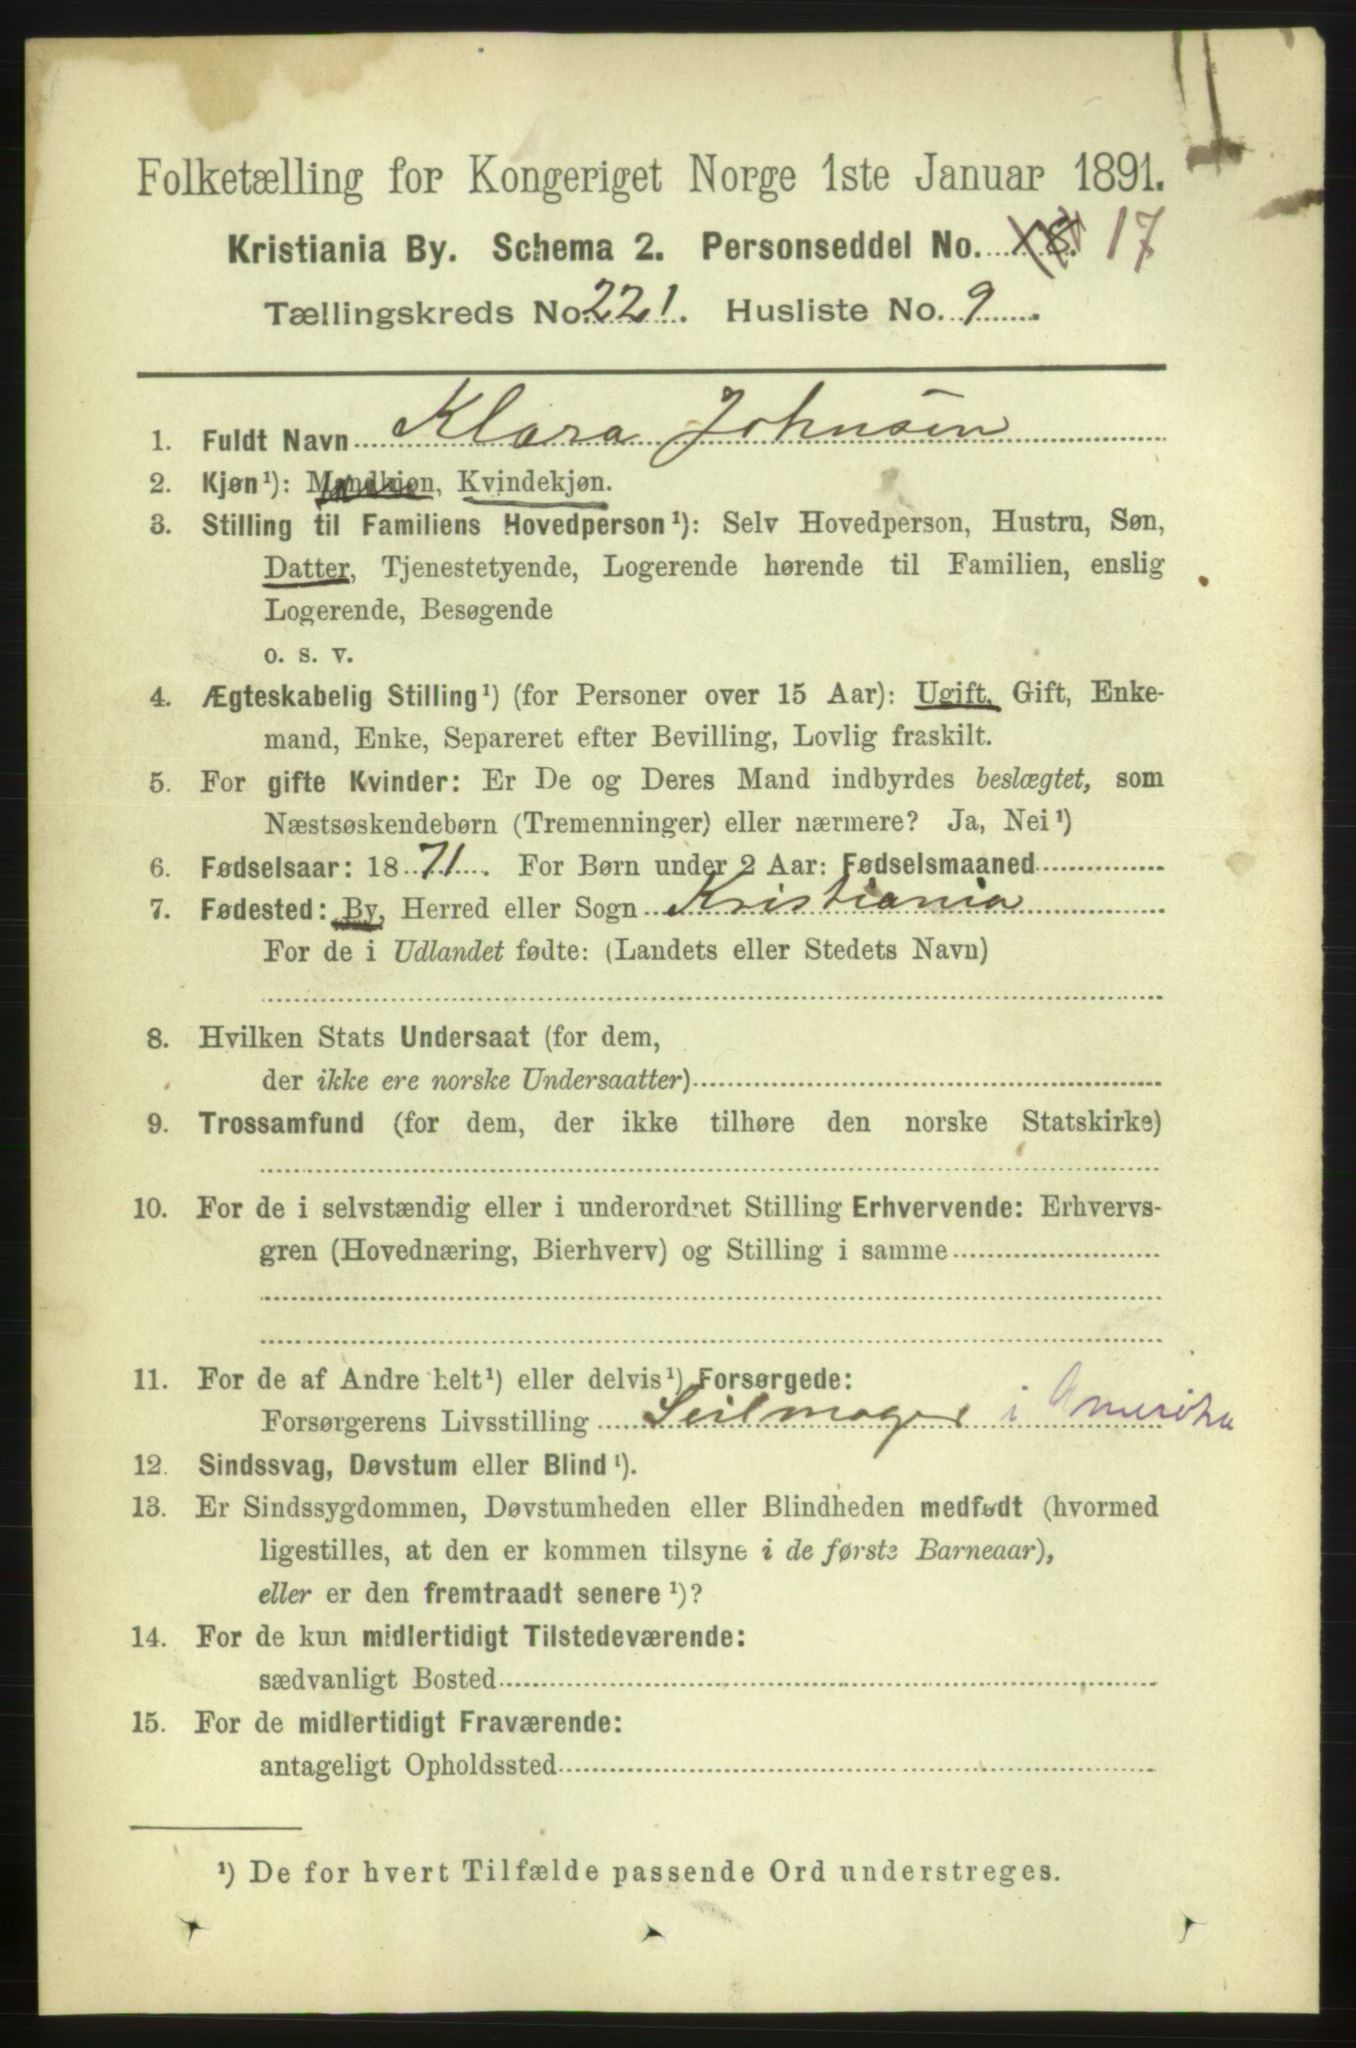 Folketælling for Kongeriget Norge 1ste Januar 1891.
Kristiania By. Schema 2. Personseddel No. 18. 17
Tællingskreds No. 221. Husliste No. 9.
1. Fuldt Navn Klara Johnsen
2. Kjøn¹): Mandkjøn, Kvindekjøn.
3. Stilling til Familiens Hovedperson¹): Selv Hovedperson, Hustru, Søn,
Datter, Tjenestetyende, Logerende hørende til Familien, enslig
Logerende, Besøgende
o. s. v.
4. Ægteskabelig Stilling¹) (for Personer over 15 Aar): Ugift, Gift, Enke-
mand, Enke, Separeret efter Bevilling, Lovlig fraskilt.
5. For gifte Kvinder: Er De og Deres Mand indbyrdes beslægtet, som
Næstsøskendebørn (Tremenninger) eller nærmere? Ja, Nei¹)
6. Fødselsaar: 1871. For Børn under 2 Aar: Fødselsmaaned
7. Fødested: By, Herred eller Sogn Kristiania
For de i Udlandet fødte: (Landets eller Stedets Navn)
8. Hvilken Stats Undersaat (for dem,
der ikke ere norske Undersaatter)
9. Trossamfund (for dem, der ikke tilhøre den norske Statskirke)
10. For de i selvstændig eller i underordnet Stilling Erhvervende: Erhvervs-
gren (Hovednæring, Bierhverv) og Stilling i samme
11. For de af Andre helt¹) eller delvis¹) Forsørgede:
Forsørgerens Livsstilling Seilmager i Amerika
12. Sindssvag, Døvstum eller Blind¹).
13. Er Sindssygdommen, Døvstumheden eller Blindheden medfødt (hvormed
ligestilles, at den er kommen tilsyne i de første Barneaar),
eller er den fremtraadt senere¹)?
14. For de kun midlertidigt Tilstedeværende:
sædvanligt Bosted
15. For de midlertidigt Fraværende:
antageligt Opholdssted
¹) De for hvert Tilfælde passende Ord understreges.